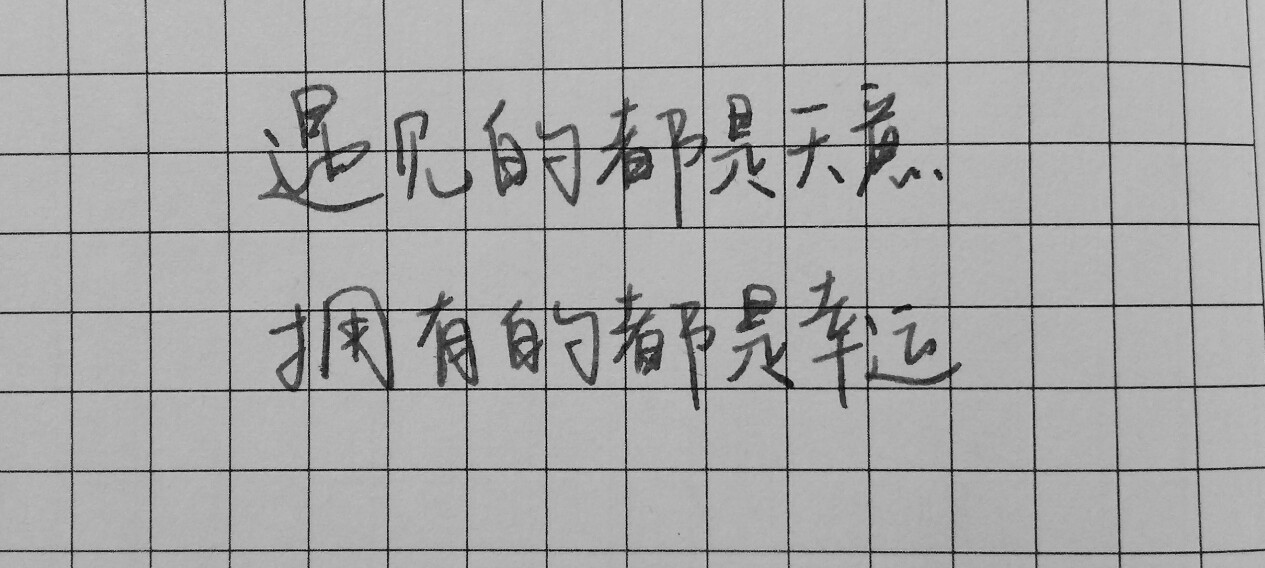 遇见的都是天意
拥有的都是幸运